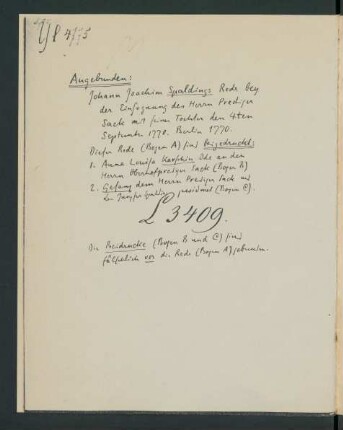 Yf 4775
Angebunden:
Johann Joachim Spaldings Rede bey
der Einsegnung des Herrn Prediger
Sack mit seiner Tochter den 4ten
Septembr 1770. Berlin 1770.
Dieser Rede (Bogen A) sind beigedruckt:
1. Anna Louisa Karschin Ode an den
Herrn Oberhofprediger Sack (Bogen B)
2. Gesang dem Herrn Prediger Sack und
der Jungfer Spalding gewidmet (Bogen C).
L 3409.
Die Beidrucke (Bogen B und C) sind
fälschlich vor die Rede (Bogen A) gebunden.